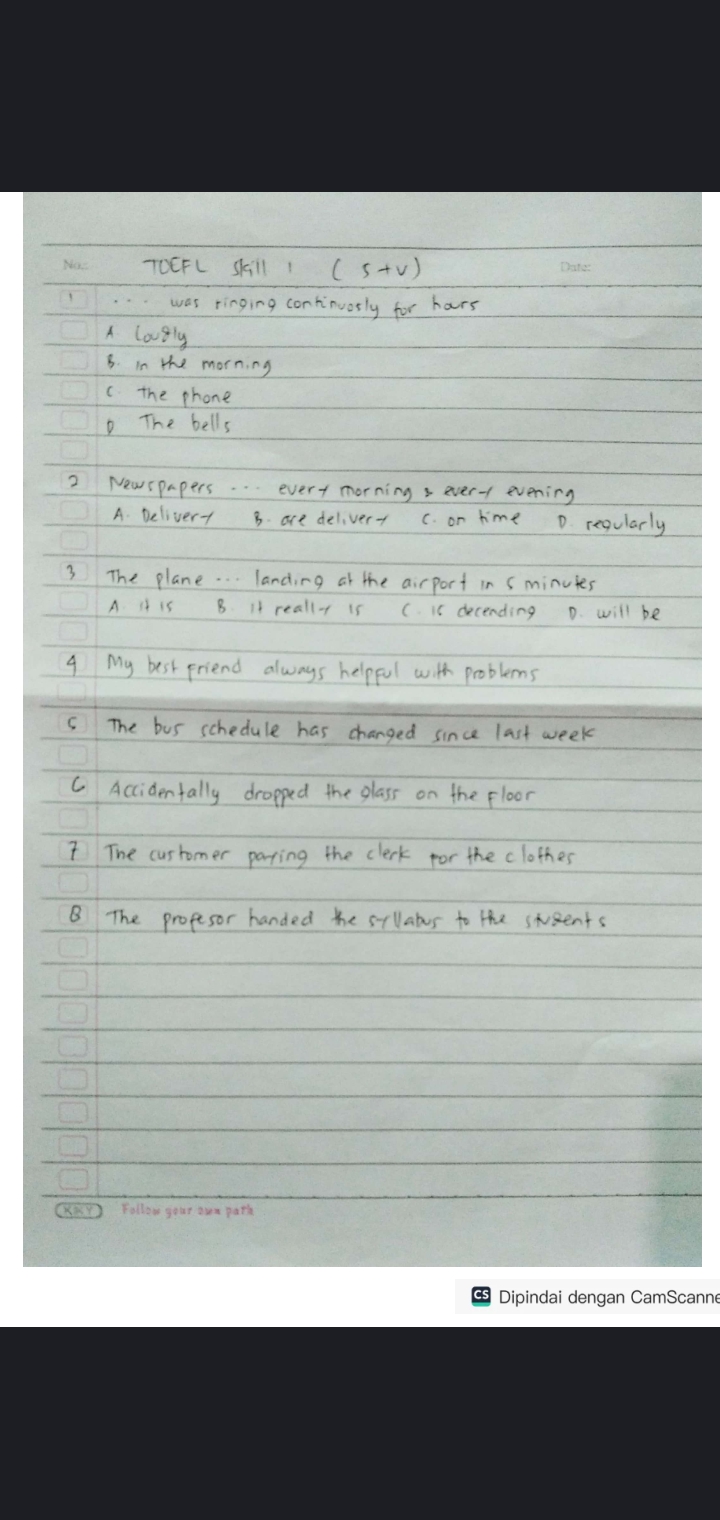 No.:
TOEFL Skill 1 ( S+V)
Date:
1 ... was ringing continuosly for hours
A Loudly
B. in the morning
C. The phone
D The bells
2 Newspapers ... every morning & every evening
A. Delivery B. are delivery C. on time D. regularly
3 The plane ... landing at the airport in 5 minutes
A. it is B. it really is C. is decending D. will be
4 My best friend always helpful with problems
5 The bus schedule has changed since last week
6 Accidentally dropped the glass on the floor
7 The customer paying the clerk for the clothes
8 The profesor handed the syllabus to the students
KKY Follow your own path
CS Dipindai dengan CamScanne